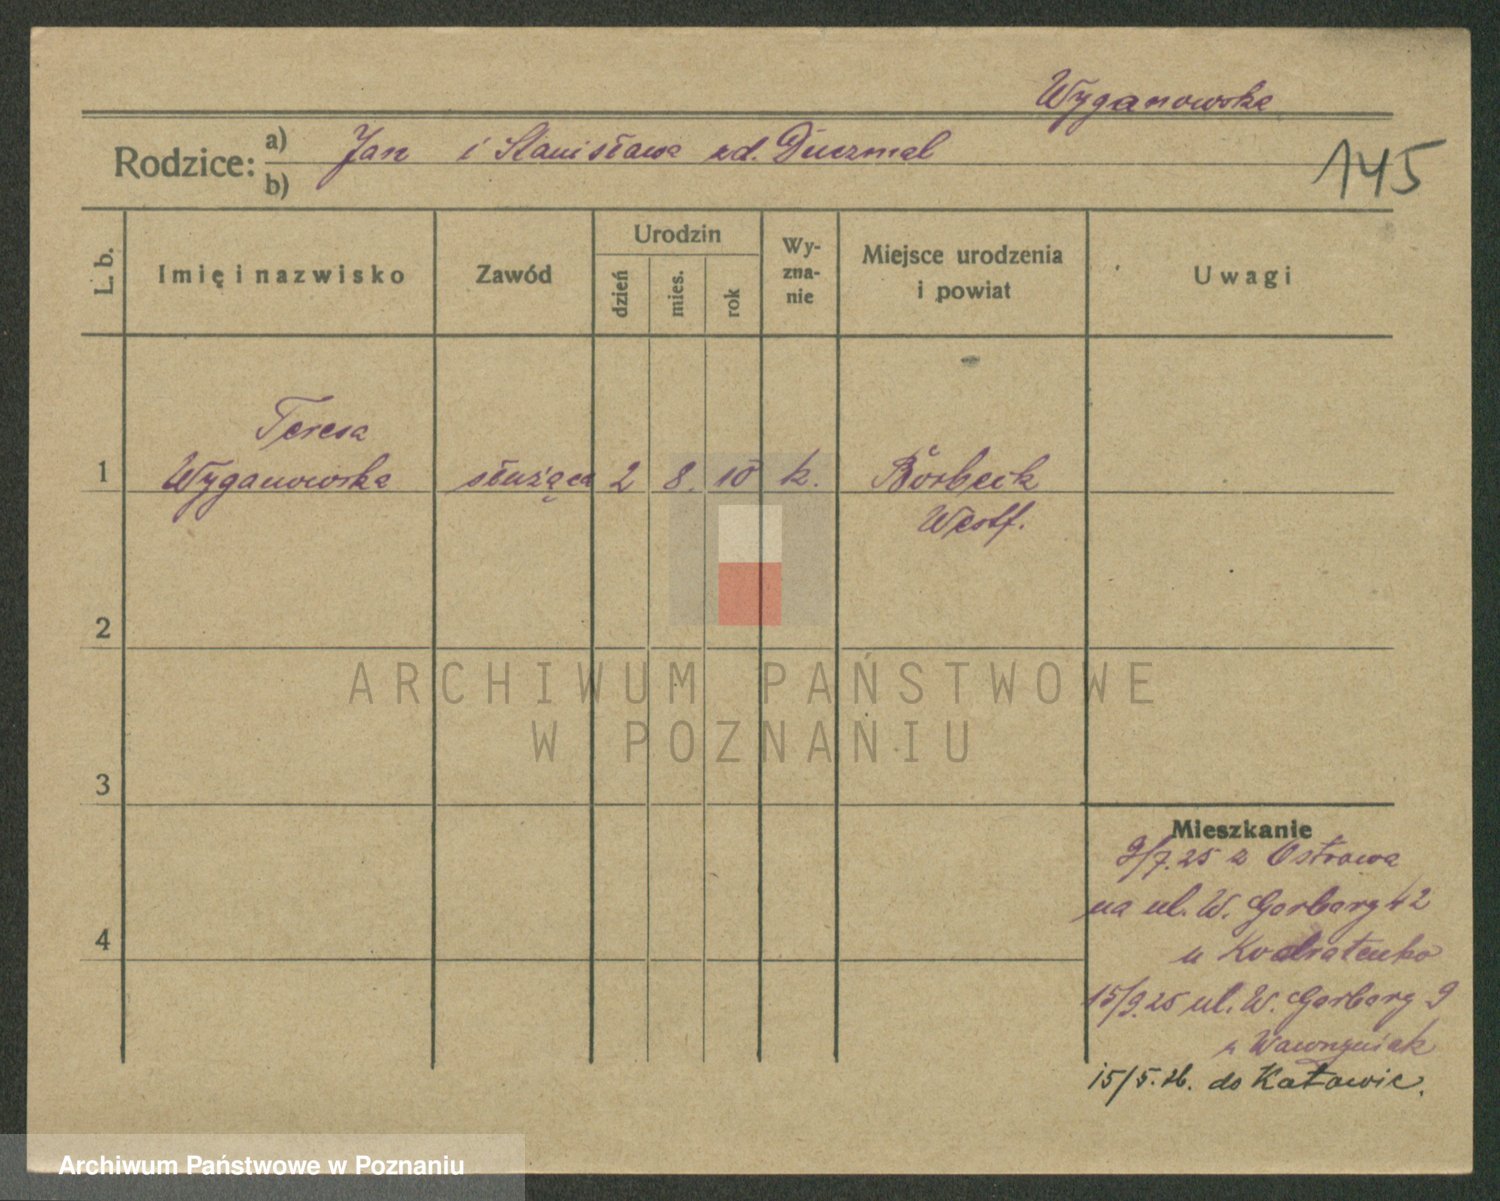 Wyganowska
Rodzice:
a) Jan i Stanisława zd. Duczmal
b)
145
L. b.
Imię i nazwisko
Zawód
Urodzin
dzień
mies.
rok
Wy-
zna-
nie
Miejsce urodzenia
i powiat
Uwagi
Teresa
1 Wyganowska służąca 2 8. 10 k. Borbeck
Westf.
2
ARCHIWUM PAŃSTWOWE
W POZNANIU
3
Mieszkanie
9/7.25 z Ostrowa
na ul. W. Garbary 42
u Kodratenko
4
15/9.25 ul. W. Garbary 9
u Wawrzyniak
15/5.26. do Katowic.
Archiwum Państwowe w Poznaniu